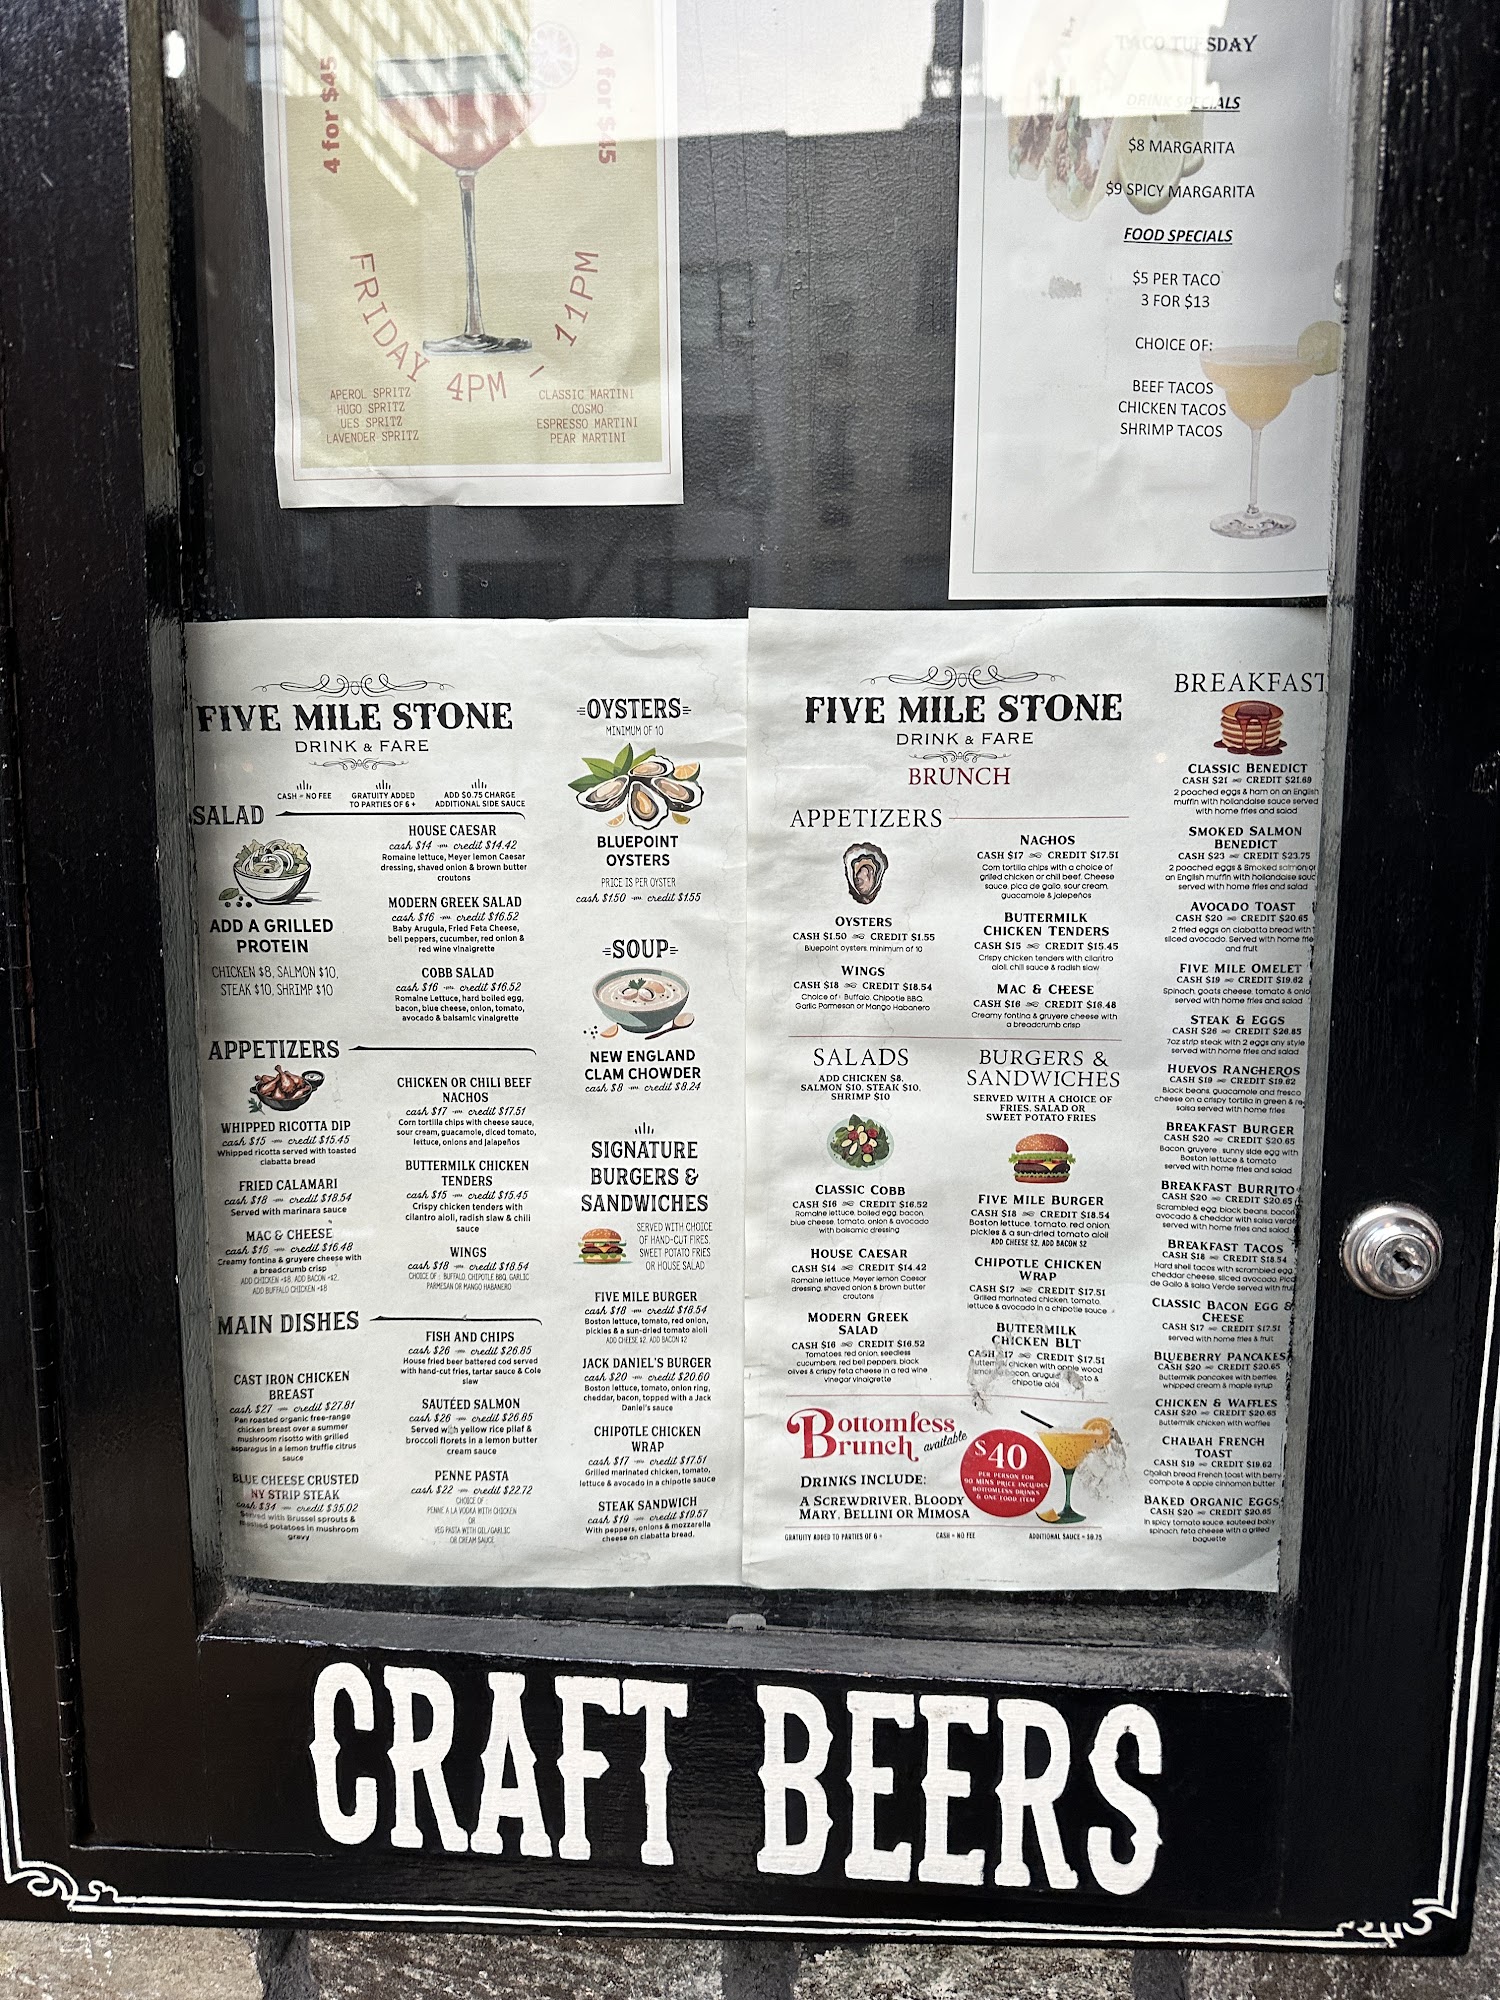 4 for $45
4 for $45
FRIDAY 4PM - 11PM
APEROL SPRITZ
HUGO SPRITZ
UES SPRITZ
LAVENDER SPRITZ
CLASSIC MARTINI
COSMO
ESPRESSO MARTINI
PEAR MARTINI
TACO TUESDAY
DRINK SPECIALS
$8 MARGARITA
$9 SPICY MARGARITA
FOOD SPECIALS
$5 PER TACO
3 FOR $13
CHOICE OF:
BEEF TACOS
CHICKEN TACOS
SHRIMP TACOS
FIVE MILE STONE
DRINK & FARE
CASH = NO FEE
GRATUITY ADDED
TO PARTIES OF 6 +
ADD $0.75 CHARGE
ADDITIONAL SIDE SAUCE
SALAD
ADD A GRILLED
PROTEIN
CHICKEN $8, SALMON $10,
STEAK $10, SHRIMP $10
HOUSE CAESAR
cash $14 credit $14.42
Romaine lettuce, Meyer lemon Caesar
dressing, shaved onion & brown butter
croutons
MODERN GREEK SALAD
cash $16 credit $16.52
Baby Arugula, Fried Feta Cheese,
bell peppers, cucumber, red onion &
red wine vinaigrette
COBB SALAD
cash $16 credit $16.52
Romaine Lettuce, hard boiled egg,
bacon, blue cheese, onion, tomato,
avocado & balsamic vinaigrette
APPETIZERS
WHIPPED RICOTTA DIP
cash $15 credit $15.45
Whipped ricotta served with toasted
ciabatta bread
FRIED CALAMARI
cash $18 credit $18.54
Served with marinara sauce
MAC & CHEESE
cash $16 credit $16.48
Creamy fontina & gruyere cheese with
a breadcrumb crisp
ADD CHICKEN +$8, ADD BACON +$2,
ADD BUFFALO CHICKEN +$8
CHICKEN OR CHILI BEEF
NACHOS
cash $17 credit $17.51
Corn tortilla chips with cheese sauce,
sour cream, guacamole, diced tomato,
lettuce, onions and jalapeños
BUTTERMILK CHICKEN
TENDERS
cash $15 credit $15.45
Crispy chicken tenders with
cilantro aioli, radish slaw & chili
sauce
WINGS
cash $18 credit $18.54
CHOICE OF : BUFFALO, CHIPOTLE BBQ, GARLIC
PARMESAN OR MANGO HABANERO
MAIN DISHES
CAST IRON CHICKEN
BREAST
cash $27 credit $27.81
Pan roasted organic free-range
chicken breast over a summer
mushroom risotto with grilled
asparagus in a lemon truffle citrus
sauce
BLUE CHEESE CRUSTED
NY STRIP STEAK
cash $34 credit $35.02
Served with Brussel sprouts &
mashed potatoes in mushroom
gravy
FISH AND CHIPS
cash $26 credit $26.85
House fried beer battered cod served
with hand-cut fries, tartar sauce & Cole
slaw
SAUTÉED SALMON
cash $26 credit $26.85
Served with yellow rice pilaf &
broccoli florets in a lemon butter
cream sauce
PENNE PASTA
cash $22 credit $22.72
CHOICE OF :
PENNE A LA VODKA WITH CHICKEN
OR
VEG PASTA WITH OIL/GARLIC
OR CREAM SAUCE
OYSTERS
MINIMUM OF 10
BLUEPOINT
OYSTERS
PRICE IS PER OYSTER
cash $1.50 credit $1.55
SOUP
NEW ENGLAND
CLAM CHOWDER
cash $8 credit $8.24
SIGNATURE
BURGERS &
SANDWICHES
SERVED WITH CHOICE
OF HAND-CUT FIRES,
SWEET POTATO FRIES
OR HOUSE SALAD
FIVE MILE BURGER
cash $18 credit $18.54
Boston lettuce, tomato, red onion,
pickles & a sun-dried tomato aioli
ADD CHEESE $2, ADD BACON $2
JACK DANIEL'S BURGER
cash $20 credit $20.60
Boston lettuce, tomato, onion ring,
cheddar, bacon, topped with a Jack
Daniel's sauce
CHIPOTLE CHICKEN
WRAP
cash $17 credit $17.51
Grilled marinated chicken, tomato,
lettuce & avocado in a chipotle sauce
STEAK SANDWICH
cash $19 credit $19.57
With peppers, onions & mozzarella
cheese on ciabatta bread.
FIVE MILE STONE
DRINK & FARE
BRUNCH
APPETIZERS
OYSTERS
CASH $1.50 CREDIT $1.55
Bluepoint oysters, minimum of 10
WINGS
CASH $18 CREDIT $18.54
Choice of : Buffalo, Chipotle BBQ,
Garlic Parmesan or Mango Habanero
NACHOS
CASH $17 CREDIT $17.51
Corn tortilla chips with a choice of
grilled chicken or chili beef. Cheese
sauce, pico de gallo, sour cream,
guacamole & jalepeños
BUTTERMILK
CHICKEN TENDERS
CASH $15 CREDIT $15.45
Crispy chicken tenders with cilantro
aioli, chili sauce & radish slaw
MAC & CHEESE
CASH $16 CREDIT $16.48
Creamy fontina & gruyere cheese with
a breadcrumb crisp
SALADS
ADD CHICKEN $8,
SALMON $10, STEAK $10,
SHRIMP $10
CLASSIC COBB
CASH $16 CREDIT $16.52
Romaine lettuce, boiled egg, bacon,
blue cheese, tomato, onion & avocado
with balsamic dressing
HOUSE CAESAR
CASH $14 CREDIT $14.42
Romaine lettuce, Meyer lemon Caesar
dressing, shaved onion & brown butter
croutons
MODERN GREEK
SALAD
CASH $16 CREDIT $16.52
Tomatoes, red onion, seedless
cucumbers, red bell peppers, black
olives & crispy feta cheese in a red wine
vinegar vinaigrette
BURGERS &
SANDWICHES
SERVED WITH A CHOICE OF
FRIES, SALAD OR
SWEET POTATO FRIES
FIVE MILE BURGER
CASH $18 CREDIT $18.54
Boston lettuce, tomato, red onion,
pickles & a sun-dried tomato aioli
ADD CHEESE $2, ADD BACON $2
CHIPOTLE CHICKEN
WRAP
CASH $17 CREDIT $17.51
Grilled marinated chicken, tomato,
lettuce & avocado in a chipotle sauce
BUTTERMILK
CHICKEN BLT
CASH $17 CREDIT $17.51
chicken with apple wood
bacon,
chipotle aioli
Bottomless
Brunch available
DRINKS INCLUDE:
A SCREWDRIVER, BLOODY
MARY, BELLINI OR MIMOSA
$40
PER PERSON FOR
90 MINS. PRICE INCLUDES
BOTTOMLESS DRINKS
& ONE FOOD ITEM
GRATUITY ADDED TO PARTIES OF 6 +
CASH = NO FEE
ADDITIONAL SAUCE = $0.75
BREAKFAST
CLASSIC BENEDICT
CASH $21 CREDIT $21.69
2 poached eggs & ham on an English
muffin with hollandaise sauce served
with home fries and salad
SMOKED SALMON
BENEDICT
CASH $23 CREDIT $23.75
2 poached eggs & Smoked salmon on
an English muffin with Hollandaise sauc
served with home fries and salad
AVOCADO TOAST
CASH $20 CREDIT $20.65
2 fried eggs on ciabatta bread with
sliced avocado. Served with home frie
and fruit
FIVE MILE OMELET
CASH $19 CREDIT $19.62
Spinach, goats cheese, tomato & onio
served with home fries and salad
STEAK & EGGS
CASH $26 CREDIT $26.85
7oz strip steak with 2 eggs any style
served with home fries and salad
HUEVOS RANCHEROS
CASH $19 CREDIT $19.62
Black beans, guacamole and fresco
cheese on a crispy tortilla in green & re
salsa served with home fries
BREAKFAST BURGER
CASH $20 CREDIT $20.65
Bacon, gruyere , sunny side egg with
Boston lettuce & tomato
served with home fries and salad
BREAKFAST BURRITO
CASH $20 CREDIT $20.65
Scrambled egg, black beans, bacon,
avocado & cheddar with salsa verde
served with home fries and salad
BREAKFAST TACOS
CASH $18 CREDIT $18.54
Hard shell tacos with scrambled egg,
cheddar cheese, sliced avocado, Pico
de Gallo & salsa Verde served with fruit
CLASSIC BACON EGG &
CHEESE
CASH $17 CREDIT $17.51
served with home fries & fruit
BLUEBERRY PANCAKES
CASH $20 CREDIT $20.65
Buttermilk pancakes with berries,
whipped cream & maple syrup
CHICKEN & WAFFLES
CASH $20 CREDIT $20.65
Buttermilk chicken with waffles
CHALLAH FRENCH
TOAST
CASH $19 CREDIT $19.62
Challah bread French toast with berry
compote & apple cinnamon butter
BAKED ORGANIC EGGS
CASH $20 CREDIT $20.65
In spicy tomato sauce, sauteed baby
spinach, feta cheese with a grilled
baguette
CRAFT BEERS